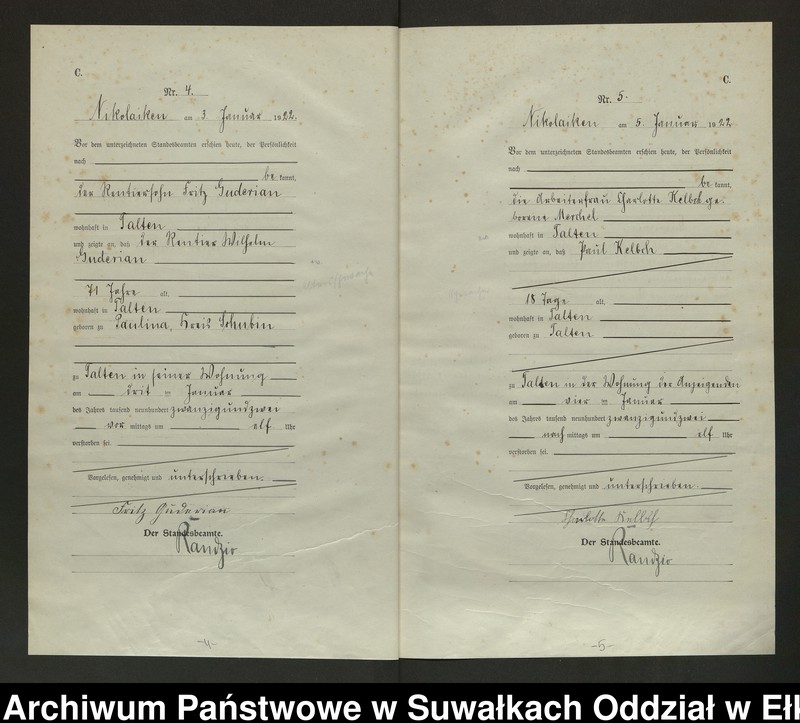 C.
Nr. 4.
Nikolaiken am 3 Januar 1922.
Vor dem unterzeichneten Standesbeamten erschien heute, der Persönlichkeit
nach
be kannt,
der Rentiersohn Fritz Guderian
wohnhaft in Talten
und zeigte an, daß der Rentier Wilhelm
Guderian
71 Jahre alt,
wohnhaft in Talten
geboren zu Paulina, Kreis Schubin
zu Talten in seiner Wohnung
am drit = Januar
des Jahres tausend neunhundert zwanzigundzwei
vor mittags um elf Uhr
verstorben sei.
Vorgelesen, genehmigt und unterschrieben.
Fritz Guderian
Der Standesbeamte.
Randzio
-4-
C.
Nr. 5.
Nikolaiken am 5. Januar 1922
Vor dem unterzeichneten Standesbeamten erschien heute, der Persönlichkeit
nach
be kannt,
die Arbeiterfrau Charlotte Kelbch ge-
borene Merchel
wohnhaft in Talten
und zeigte an, daß Paul Kelbch
18 Tage alt,
wohnhaft in Talten
geboren zu Talten
zu Talten in der Wohnung der Anzeigenden
am vier = Januar
des Jahres tausend neunhundert zwanzigundzwei
nach mittags um elf Uhr
verstorben sei.
Vorgelesen, genehmigt und unterschrieben
Charlotte Kelbch
Der Standesbeamte.
Randzio
-5-
Archiwum Państwowe w Suwałkach Oddział w Ełk